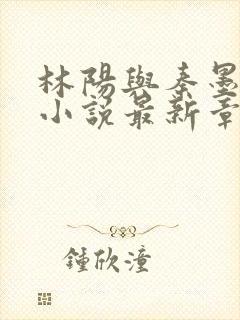 林陽與秦墨
小說最新章
鍾欣潼